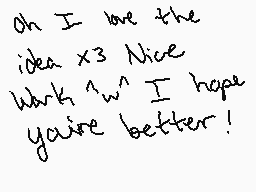 oh I love the
idea x3 Nice
Work ^w^ I hope
you're better!